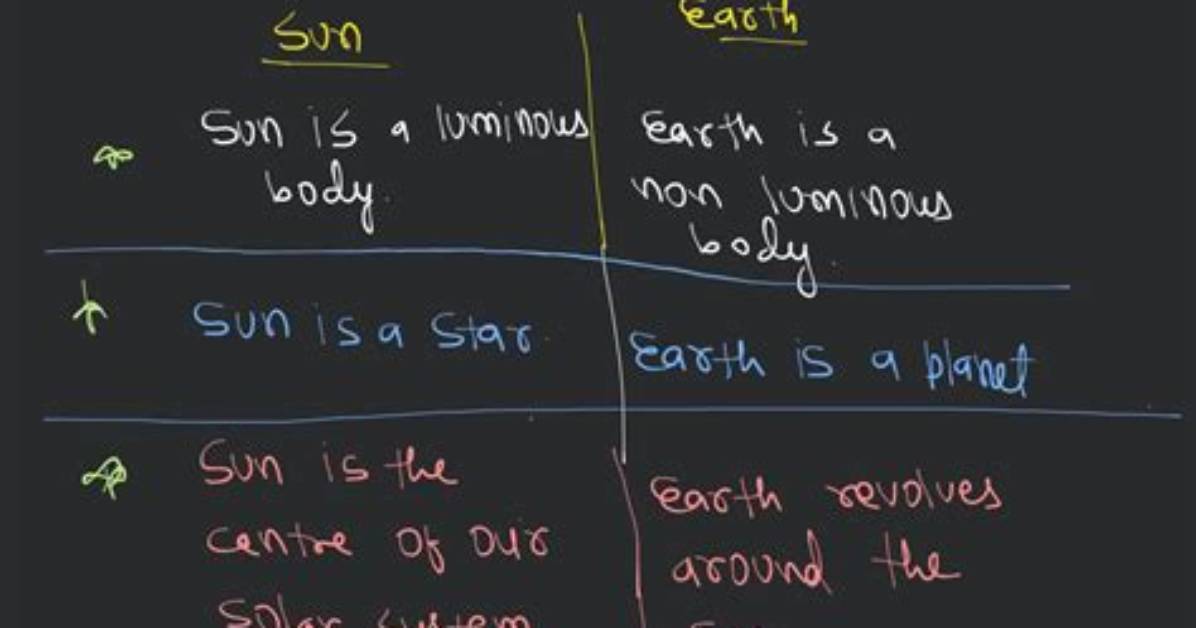 Sun
Earth
Sun is a luminous
body.
Earth is a
non luminous
body.
Sun is a star.
Earth is a planet
Sun is the
centre of our
solar system
Earth revolves
around the